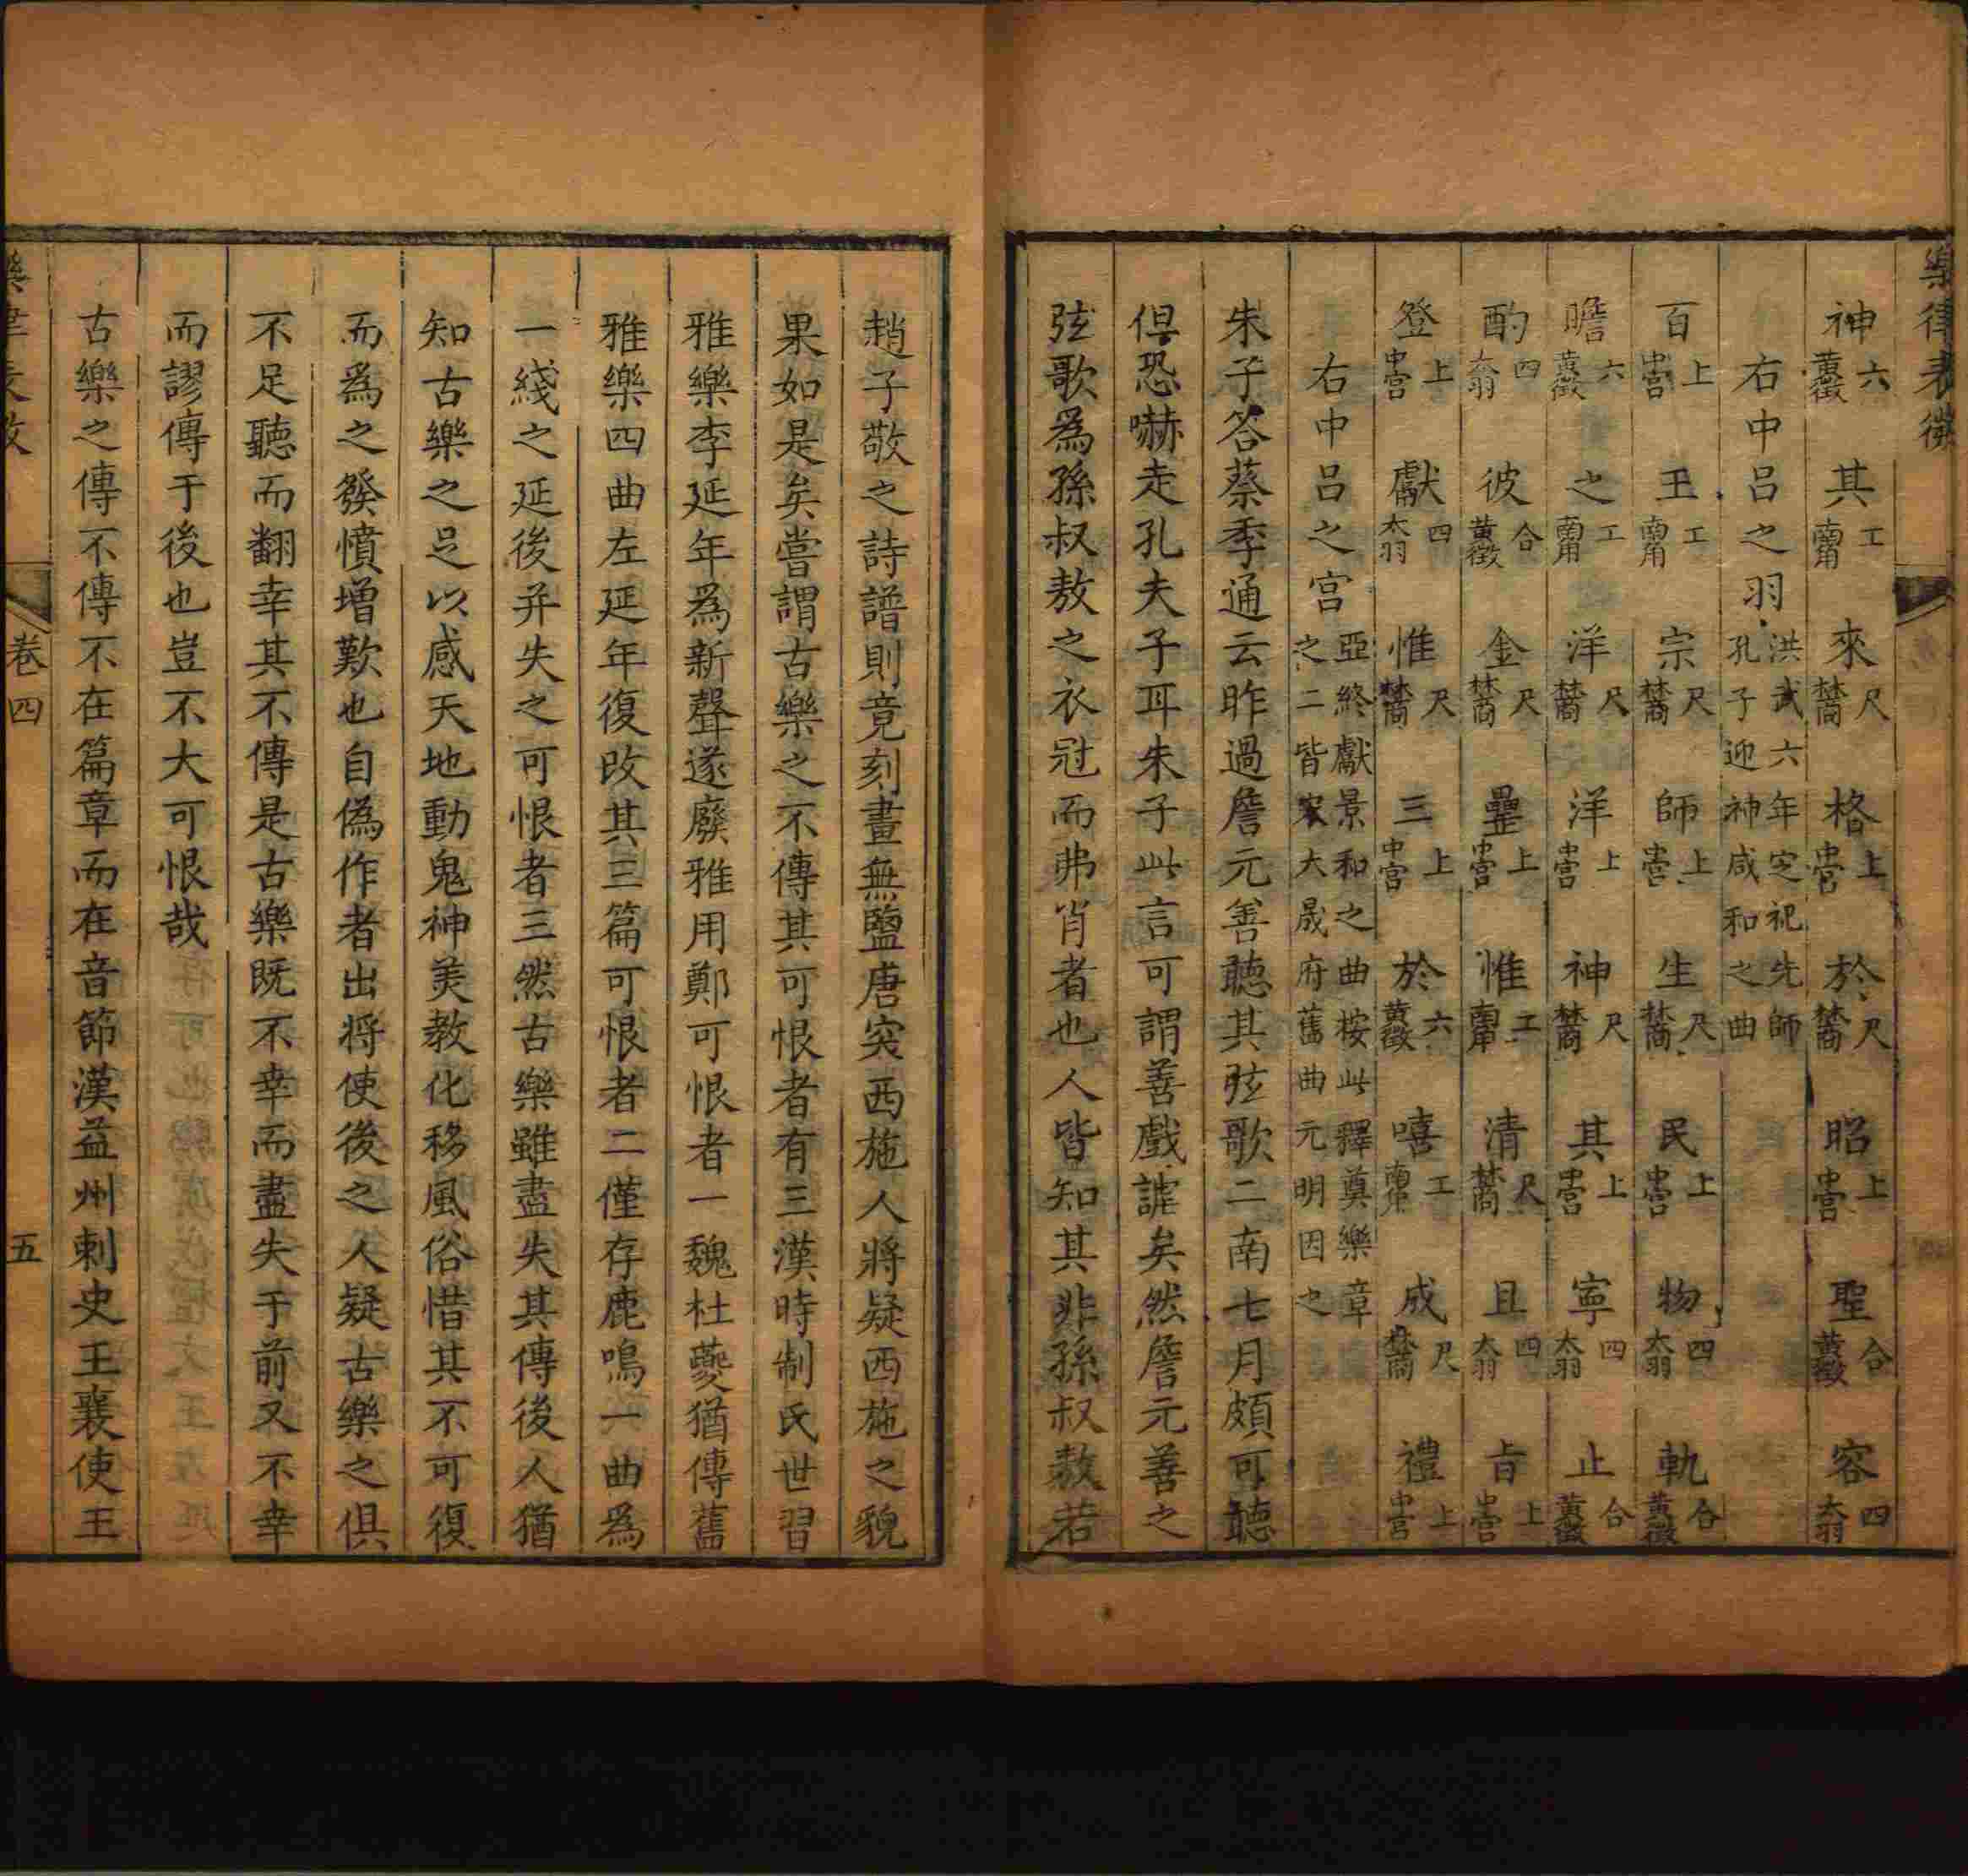 樂律表微
神黃徵六其南角工來林商尺格中宮上於林商尺昭中宮上聖黃徵合容太羽四
右中呂之羽洪武六年定祀先師孔子迎神咸和之曲
百中宮上王南角工宗林商尺師中宮上生林商尺民中宮上物太羽四軌黃徵合
瞻黃徵六之南角工洋林商尺洋中宮上神林商尺其中宮上寧太羽四止黃徵合
酌太羽四彼黃徵合金林商尺罍中宮上惟南角工清林商尺且太羽四旨中宮上
登中宮上獻太羽四惟林商尺三中宮上於黃徵六嘻南角工成林商尺禮中宮上
右中呂之宮亞終獻景和之曲按此釋奠樂章之二皆宋大晟府舊曲元明因之也
朱子答蔡季通云昨過詹元善聽其弦歌二南七月頗可聽
但恐嚇走孔夫子耳朱子此言可謂善戲謔矣然詹元善之
弦歌為孫叔敖之衣冠而弗肖者也人皆知其非孫叔敖若
趙子敬之詩譜則竟刻畫無鹽唐突西施人將疑西施之貌
果如是矣嘗謂古樂之不傳其可恨者有三漢時制氏世習
雅樂李延年為新聲遂廢雅用鄭可恨者一魏杜夔猶傳舊
雅樂四曲左延年復改其三篇可恨者二僅存鹿鳴一曲為
一綫之延後并失之可恨者三然古樂雖盡失其傳後人猶
知古樂之足以感天地動鬼神美教化移風俗惜其不可復
而爲之發憤增歎也自僞作者出將使後之人疑古樂之俱
不足聽而翻幸其不傳是古樂既不幸而盡失于前又不幸
而謬傳于後也豈不大可恨哉
古樂之傳不傳不在篇章而在音節漢益州刺史王襄使王
樂律表微 卷四 五